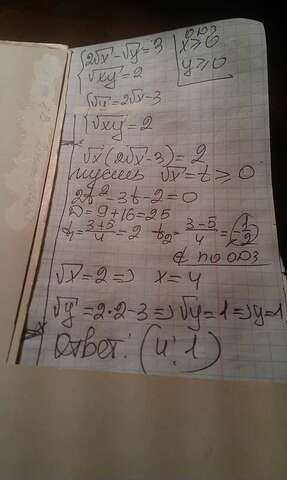 {2√x - √y = 3
√xy = 2
ОДЗ
x ≥ 0
y ≥ 0
{√y = 2√x - 3
√xy = 2
√x (2√x - 3) = 2
пусть √x = t ≥ 0
2t² - 3t - 2 = 0
D = 9 + 16 = 25
t₁ = (3+5)/4 = 2 t₂ = (3-5)/4 = (-1/2)
∉ по ОДЗ
√x = 2 => x = 4
√y = 2·2 - 3 => √y = 1 => y = 1
Ответ: (4; 1)